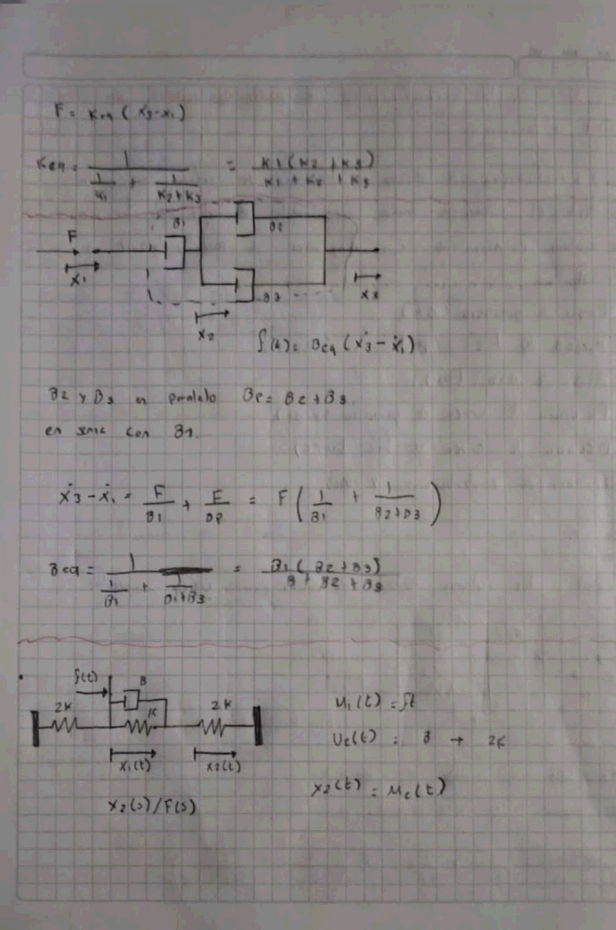 F = Keq ( ẋ3-x1 )
Keq = 1 / ( 1/K1 + 1/(K2+K3) ) = K1(K2+K3) / (K1+K2+K3)
F B1 B2
x1 B3 x3
x2
f(t) = Beq (ẋ3 - ẋ1)
B2 y B3 en paralelo Bp = B2+B3
en serie con B1.
ẋ3 - ẋ1 = F/B1 + F/Bp = F ( 1/B1 + 1/(B2+B3) )
Beq = 1 / ( 1/B1 + 1/(B1+B3) ) = B1(B2+B3) / (B+B2+B3)
f(t) B
2K K 2K
x1(t) x2(t)
x2(s)/F(s)
u1(t) = ft
U2(t) = B → 2K
x2(t) = u2(t)